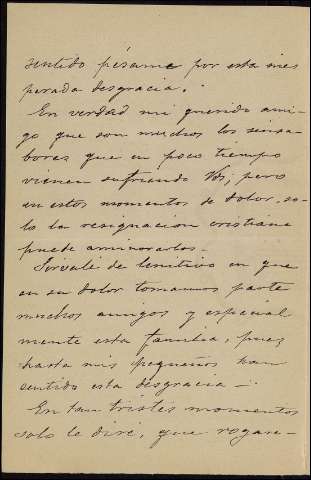 sentido pésame por esta ines
perada desgracia.
En verdad mi querido ami-
go que son muchos los sinsa
bores que en poco tiempo
vienen sufriendo Vds, pero
en estos momentos de dolor, so-
lo la resignacion cristiana
puede aminorarlos.
Sirvale de lenitivo en que
en su dolor tomamos parte
muchos amigos y especial
mente esta familia, pues
hasta mis pequeños han
sentido esta desgracia.
En tan tristes momentos
solo le diré, que rogare-